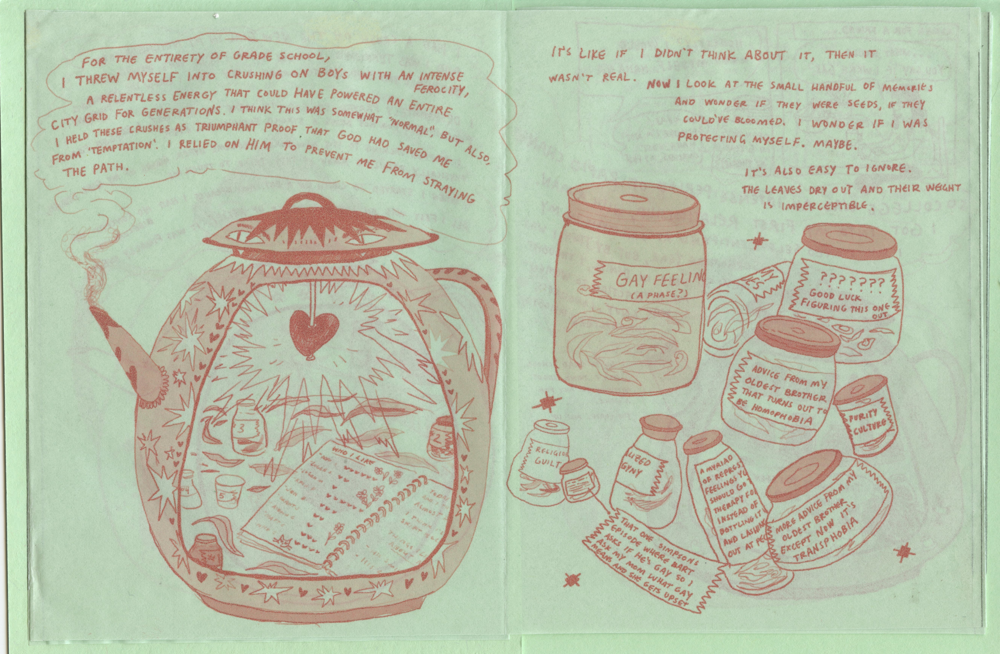 FOR THE ENTIRETY OF GRADE SCHOOL,
I THREW MYSELF INTO CRUSHING ON BOYS WITH AN INTENSE
FEROCITY,
A RELENTLESS ENERGY THAT COULD HAVE POWERED AN ENTIRE
CITY GRID FOR GENERATIONS. I THINK THIS WAS SOMEWHAT "NORMAL", BUT ALSO,
I HELD THESE CRUSHES AS TRIUMPHANT PROOF THAT GOD HAD SAVED ME
FROM 'TEMPTATION'. I RELIED ON HIM TO PREVENT ME FROM STRAYING
THE PATH.
WHO I LIKE
3
2
IT'S LIKE IF I DIDN'T THINK ABOUT IT, THEN IT
WASN'T REAL. NOW I LOOK AT THE SMALL HANDFUL OF MEMORIES
AND WONDER IF THEY WERE SEEDS, IF THEY
COULD'VE BLOOMED. I WONDER IF I WAS
PROTECTING MYSELF. MAYBE.
IT'S ALSO EASY TO IGNORE.
THE LEAVES DRY OUT AND THEIR WEIGHT
IS IMPERCEPTIBLE.
GAY FEELING
(A PHASE?)
???????
GOOD LUCK
FIGURING THIS ONE
OUT
ADVICE FROM MY
OLDEST BROTHER
THAT TURNS OUT TO
BE HOMOPHOBIA
PURITY
CULTURE
RELIGIOUS
GUILT
A MYRIAD
OF REPRESS
FEELINGS YOU
SHOULD GO
THERAPY FO
INSTEAD OF
BOTTLING IT
AND LASHING
OUT AT PE
MORE ADVICE FROM MY
OLDEST BROTHER
EXCEPT NOW IT'S
TRANSPHOBIA
THAT ONE SIMPSONS
EPISODE WHERE BART
ASKS IF HE'S GAY SO I
ASK MY MOM WHAT GAY
MEAN AND SHE GETS UPSET